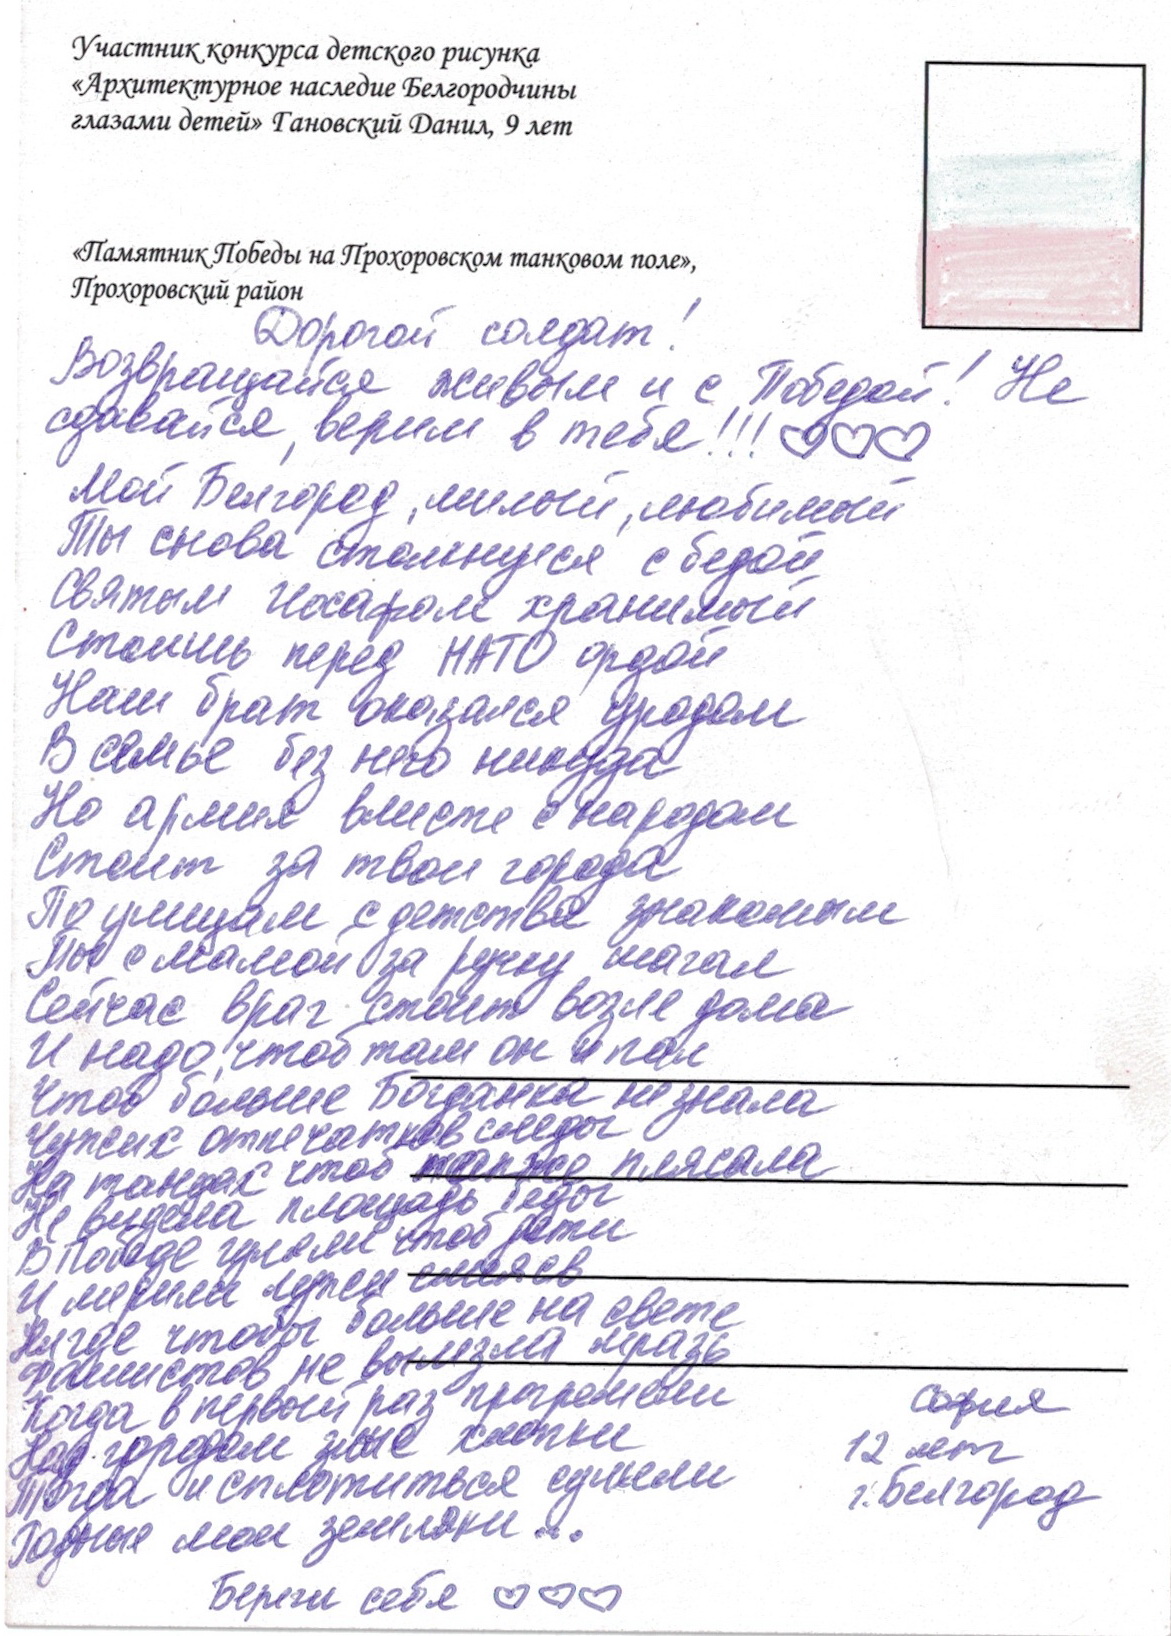 Участник конкурса детского рисунка
«Архитектурное наследие Белгородчины
глазами детей» Гановский Данил, 9 лет
«Памятник Победы на Прохоровском танковом поле»,
Прохоровский район
Дорогой солдат!
Возвращайся живым и с Победой! Не
сдавайся, верим в тебя!!! ♡♡♡
Мой Белгород, милый, любимый
Ты снова столкнулся с бедой
Святым Иосафом хранимый
Стоишь перед НАТО ордой
Наш брат оказался уродом
В семье без него никуда
Но армия вместе с народом
Стоит за твои города
По улицам с детства знакомым
Ты с мамой за ручку шагал
Сейчас враг стоит возле дома
И надо, чтоб там он и пал
Чтоб больше Богданка не знала
Чужих отпечатков следы
На танцах чтоб плясала
Не видела площадь беды
В Победе гуляли чтоб дети
И мерили лужи смеясь
Нигде чтобы больше на свете
Фашистов не вылезла мразь
Когда в первый раз прогремели
Над городом злые хлопки
Тогда и сплотиться сумели
Родные мои земляки...
София
12 лет
г. Белгород
Береги себя ♡♡♡